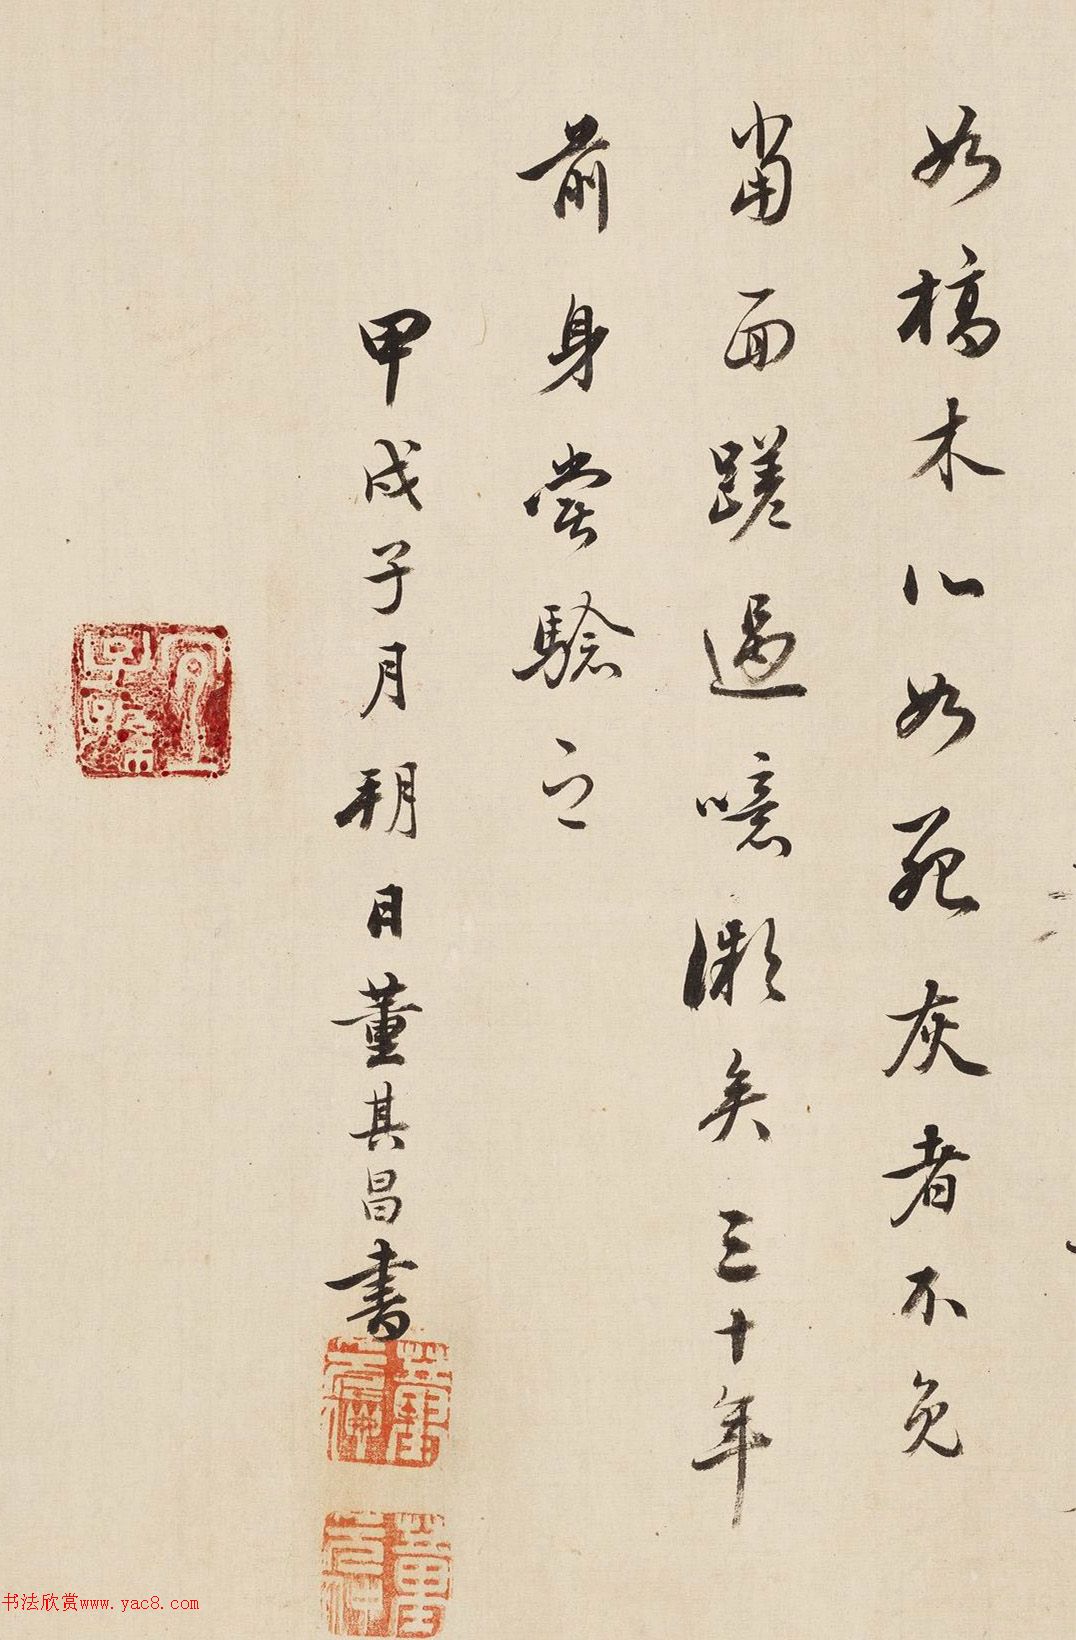 如槁木心如死灰者不免
當面蹉過噫微矣三十年
前身嘗驗之
甲戌子月朔日董其昌書
书法欣赏www.yac8.com